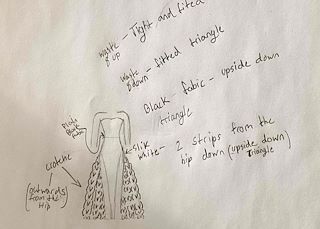 waste - Tight and fited
& up
waste - fitted triangle
& down
Black - fabic - upside down
triangle
slik - 2 strips from the
white hip down (upside down)
Triangle
Black
(outwards
from the
Hip)